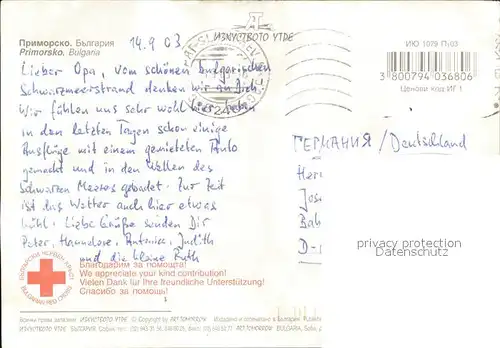 ИЗКУСТВОТО УТДЕ
Приморско. България
Primorsko. Bulgaria
14.9.03
Lieber Opa, vom schönen bulgarischen
Schwarzmeerstrand denken wir an Dich!
Wir fühlen uns sehr wohl hier, haben
in den letzten Tagen schon einige
Ausflüge mit einem gemieteten Auto
gemacht und in den Wellen des
Schwarzen Meeres gebadet. Zur Zeit
ist das Wetter auch hier etwas
kühl. Liebe Grüße senden Dir
Peter, Hannelore, Antonia, Judith
und die kleine Ruth
ИЮ 1079 П\03
3 800794 036806
Ценови Код ИГ 1
ГЕРМАНИЯ / Deutschland
Her
Jos
Bah
D-
privacy protection
Datenschutz
БЪЛГАРСКИ ЧЕРВЕН КРЪСТ
BULGARIAN RED CROSS
Благодарим за помощта!
We appreciate your kind contribution!
Vielen Dank für Ihre freundliche Unterstützung!
Спасибо за помощь!
Всички права запазени ИЗКУСТВОТО УТДЕ © Copyright by ARTTOMORROW
ИЗКУСТВОТО УТДЕ BULGARIA